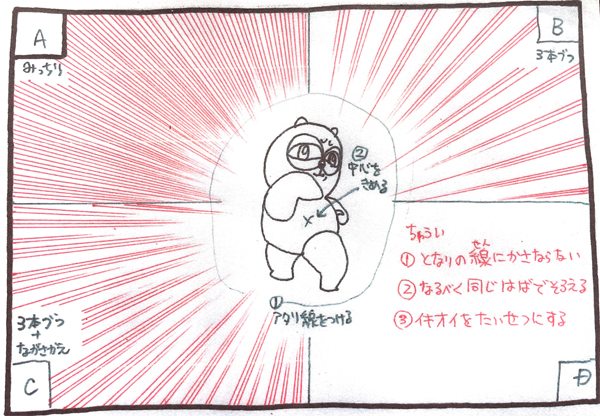 A
みっちり
B
3本づつ
②
中心を
きめる
①
アタリ線をつける
ちゅうい
せん
①となりの線にかさならない
②なるべく同じはばでそろえる
③イキオイをたいせつにする
3本づつ
+
ながさかえ
C
D